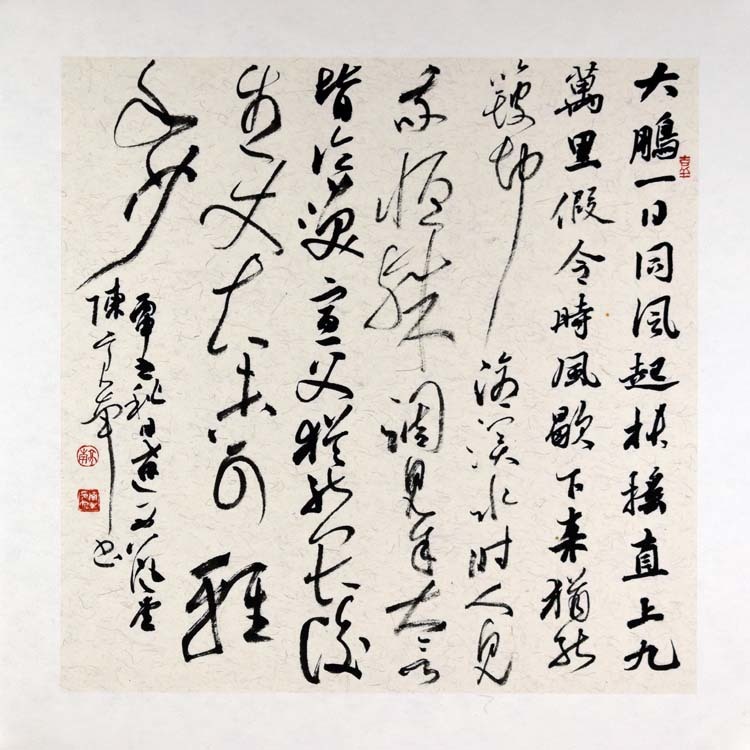 大鵬一日同风起扶搖直上九
萬里假令時風歇下来猶能
簸却滄溟水时人見
我恒殊調見余大言
皆冷笑宣父猶能畏後
生丈夫未可輕
年少
秋日
陳 书